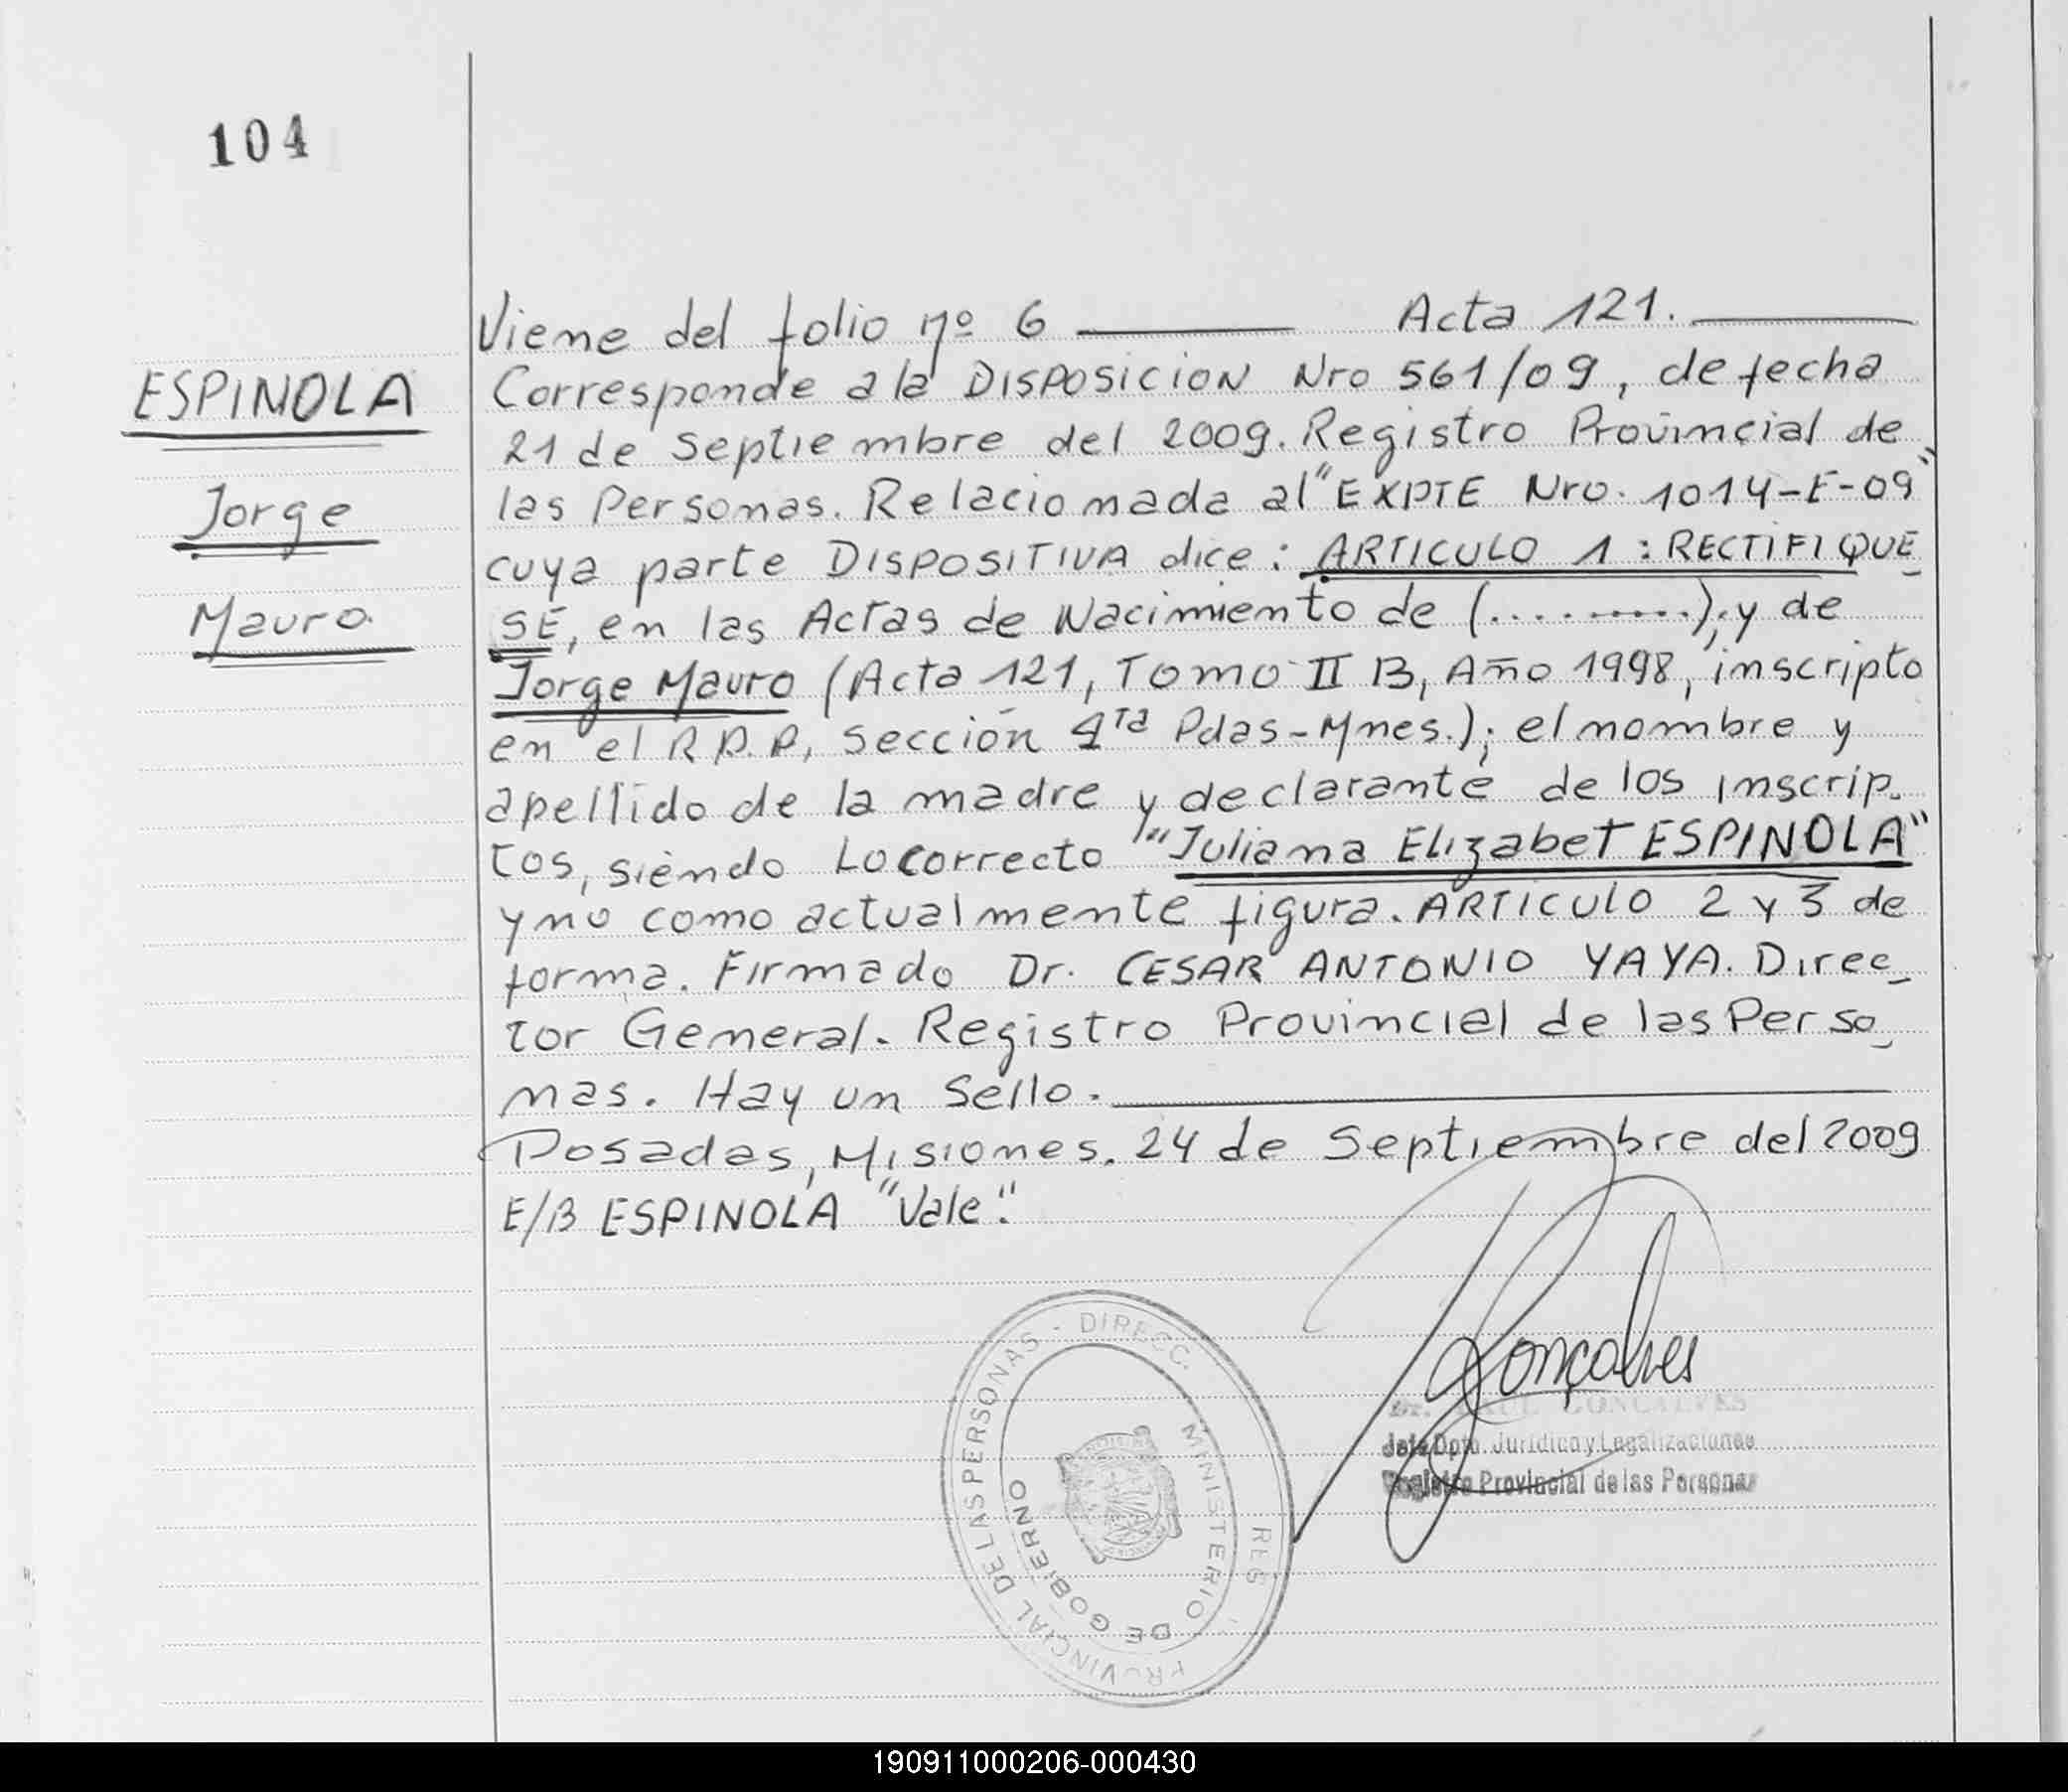 104
Viene del folio nº 6 Acta 121.
ESPINOLA
Jorge
Mauro.
Corresponde a la DISPOSICION Nro 561/09, de fecha
21 de Septiembre del 2009. Registro Provincial de
las Personas. Relacionada al "EXPTE Nro. 1014-E-09"
cuya parte DISPOSITIVA dice: ARTICULO 1: RECTIFIQUE
SE, en las Actas de Nacimiento de (..........); y de
Jorge Mauro (Acta 121, Tomo II B, Año 1998, inscripto
en el R.P.P, Sección 4ta Pdas-Mnes.); el nombre y
apellido de la madre y declarante de los inscrip-
tos, siendo Lo correcto "Juliana Elizabet ESPINOLA"
y no como actualmente figura. ARTICULO 2 y 3 de
forma. Firmado Dr. CESAR ANTONIO YAYA. Direc-
tor General. Registro Provincial de las Perso-
nas. Hay un Sello.
Posadas, Misiones. 24 de Septiembre del 2009
E/B ESPINOLA "Vale".
DIREC. REG. PROVINCIAL DE LAS PERSONAS -
MINISTERIO DE GOBIERNO
Gonçalves
Dr. RAUL GONCALVES
Jefe Dpto. Jurídico y Legalizaciones
Registro Provincial de las Personas
190911000206-000430